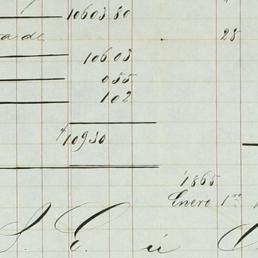 10603 50
ra de 25
106 03
0 55
102
10930
1865
Enero 1ro
S. E. ú